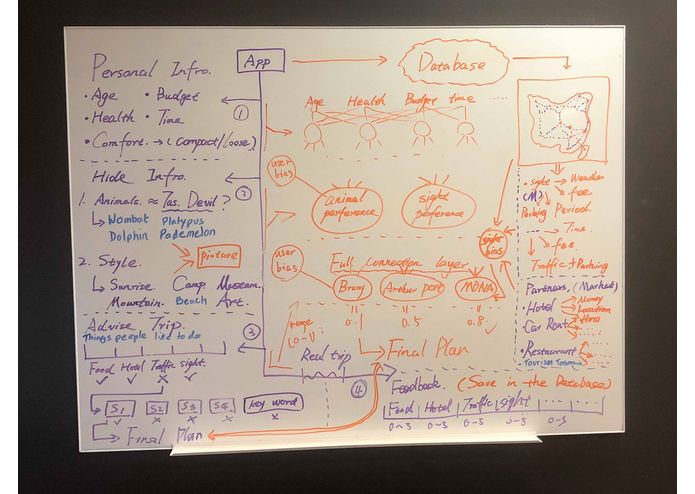 Personal Infro.
• Age • Budget
• Health • Time
• Comfort. → (Compact/Loose)
①
App
Database
Age Health Budget time ......
Hide Infro.
②
1. Animals. ≈ Tas. Devil?
↳ Wombat Platypus
Dolphin Pademelon
picture
2. Style.
↳ Sunrise. Camp. Museum.
Mountain. Beach Art.
user bias
animal perference
sight perference
sight bias
user bias
Full connection layer
Bruny
Arthur port
MONA
0.1 0.5 0.8
range
(0-1)
Final Plan
• sight → Weather
(M) → fee
Parking Period.
Time
fee.
Traffic + Parking
Partners. (Market)
Hotel → Money
Location
time
Car Rent
Restaurant
Tourism
Advise Trip.
Things people like to do
③
Food Hotel Traffic sight.
✓ ✓ × ✓
S1 S2 S3 S4. key word
✓ × × × ×
Final Plan
Real trip
④
Feedback. (Save in the Database)
Food Hotel Traffic sight ... ...
0~5 0~5 0~5 0~5 0~5